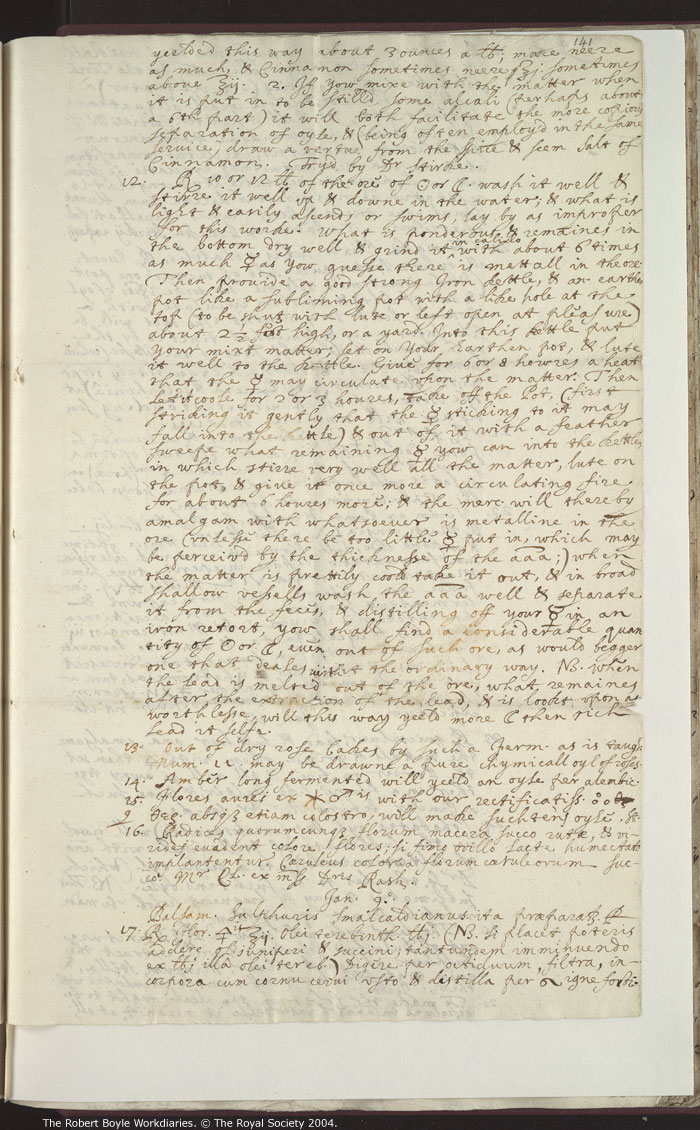 141
yeelded this way about 3 ounces a ℔; mace neere
as much, & Cinnamon sometimes neere ʒj. sometimes
above ʒij. 2. If yow mixe with the matter when
it is put in to be still'd some alcali (perhaps about
a 6th part) it will both facilitate the more copious
separation of oyle, & (being often employ'd in the same
service) draw a vertue from the spice & seem Salt of
Cinnamon. Try'd by Dr Stirke.
12. ℞ 10 or 12 ℔ of the ore of ☉ or ☾. wash it well &
stirre it well up & downe in the water; & what is
light & easily ascends or swims, lay by as improper
for this worke. What is ponderous & remaines in
the bottom dry well & grind it in calido with about 6 times
as much ☿ as yow guesse there is mettall in the ore.
Then provide a good strong Iron kettle, & an earthen
pot like a subliming pot with a like hole at the
top (to be shut with lute or left open at pleasure)
about 2 1/2 foot high, or a yard. Into this kettle put
your mixt matter; set on your Earthen pot, & lute
it well to the kettle. Give for 6 or 8 howres a heat
that the ☿ may circulate upon the matter. Then
let it coole for 2 or 3 houres, take off the Pot, (first
striking it gently that the ☿ sticking to it may
fall into the kettle) & out of it with a feather
sweepe what remaining ☿ yow can into the kettle,
in which stirre very well all the matter, lute on
the pot, & give it once more a circulating fire
for about 6 houres more; & the merc. will thereby
amalgam with whatsoever is metalline in the
ore (unlesse there be too little ☿ put in, which may
be perceiv'd by the thicknesse of the aaa:) when
the matter is prettily coold take it out, & in broad
shallow vessells wash the aaa well & separate
it from the feces, & distilling off your ☿ in an
iron retort, yow shall find a considerable quan
tity of ☉ or ☾, even out of such ore, as would begger
one that deales with it the ordinary way. NB. when
the lead is melted out of the ore, what remaines
after the extraction of the lead, & is lookt upon as
worthlesse, will this way yeeld more ☾ then rich
Lead it selfe.
13. Out of dry rose cakes by such a Ferm. as is taught
Num. 11. may be drawne a pure chymicall oyl of roses.
14. Amber long fermented will yeeld an oyle per alembic.
15. Flores aurei ex ✶ ♂tis with our rectificatiss.
absq etiam colostro, will make such tens oyle. St.
16. Radices quorumcunq florum macera succo rutæ, & vi-
rides evadent colore flores; si fimo ovillo lacte humectato
implantentur. Cæruleus color a florum cæruleorum suc-
co. Mr Cl. ex mss Dris Rash.
Jan. 9.o
Balsam. Sulphuris Smalcaldianus ita præparatq
17. ℞ Flor. ʒij. olei terebinth ℔j. (NB. si placet poteris
addere ol juniperi & succini; tantundem imminuendo
ex ℔j illa olei tereb.) Digere per octiduum, filtra, in-
corpora cum cornu cervi usto & distilla per igne forti.
The Robert Boyle Workdiaries. © The Royal Society 2004.